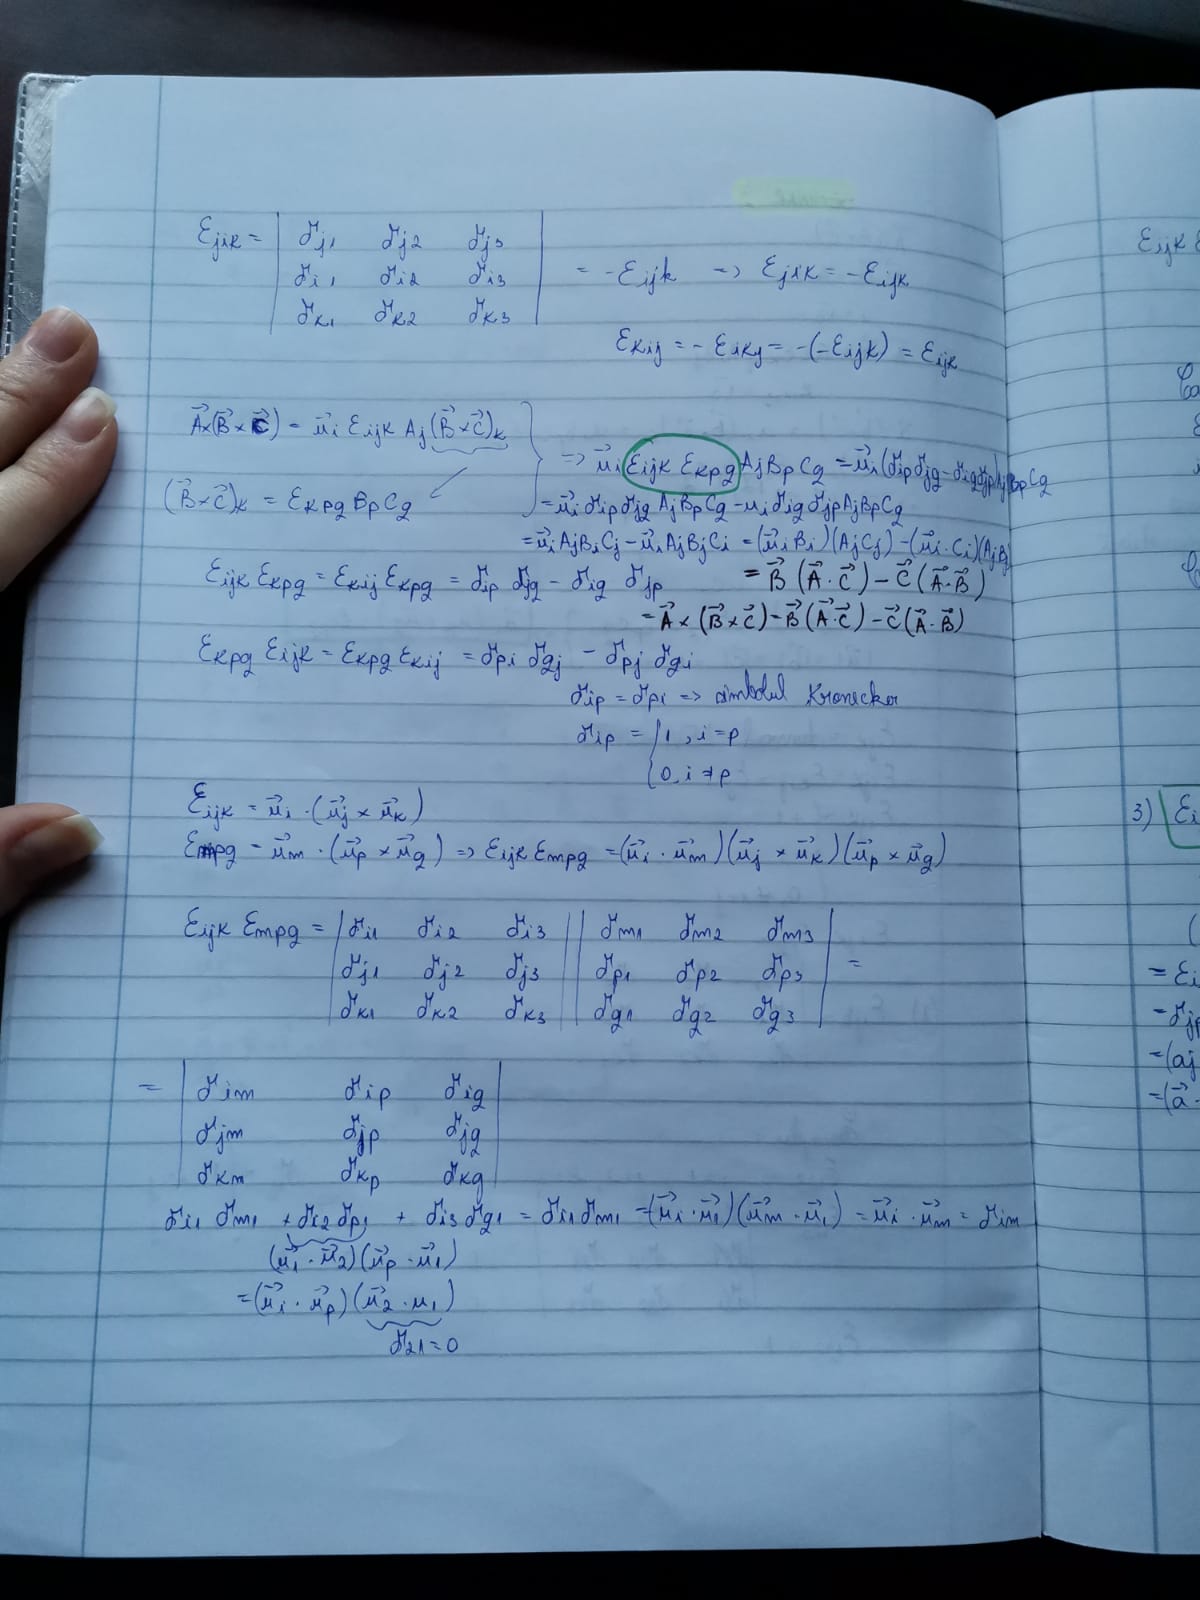 εjik = | δj1 δj2 δj3 |
| δi1 δi2 δi3 | = -εijk => εjik = -εijk
| δk1 δk2 δk3 |
εkij = -εikj = -(-εijk) = εijk
A⃗×(B⃗×C⃗) = u⃗i εijk Aj (B⃗×C⃗)k
=> u⃗i εijk εkpq AjBpCq = u⃗i(δip δjq - δiq δjp)AjBpCq
(B⃗×C⃗)k = εkpq BpCq
= u⃗i δip δjq AjBpCq - ui δiq δjp AjBpCq
= u⃗i AjBiCj - u⃗i AjBjCi = (u⃗i Bi)(AjCj) - (u⃗i · Ci)(AjBj
εijk εkpq = εkij εkpq = δip δjq - δiq δjp
= B⃗ (A⃗·C⃗) - C⃗ (A⃗·B⃗)
= A⃗ × (B⃗×C⃗) = B⃗(A⃗·C⃗) - C⃗(A⃗·B⃗)
εkpq εijk = εkpq εkij = δpi δqj - δpj δqi
δip = δpi => simbolul Kronecker
δip = { 1, i=p
{ 0, i≠p
εijk = u⃗i · (u⃗j × u⃗k)
εmpq = u⃗m · (u⃗p × u⃗q) => εijk εmpq = (u⃗i · u⃗m)(u⃗j × u⃗k)(u⃗p × u⃗q)
εijk εmpq = | δi1 δi2 δi3 | | δm1 δm2 δm3 |
| δj1 δj2 δj3 | | δp1 δp2 δp3 | =
| δk1 δk2 δk3 | | δq1 δq2 δq3 |
= | δim δip δiq |
| δjm δjp δjq |
| δkm δkp δkq |
δi1 δm1 + δi2 δp1 + δi3 δq1 = δi1 δm1 = (u⃗i · u⃗1)(u⃗m · u⃗1) = u⃗i · u⃗m = δim
(u⃗i · u⃗2)(u⃗p · u⃗1)
= (u⃗i · u⃗p)(u⃗2 · u1)
δ21 = 0
εijk
3) εi
= εi
- δjp
= (aj
= (a⃗ ·